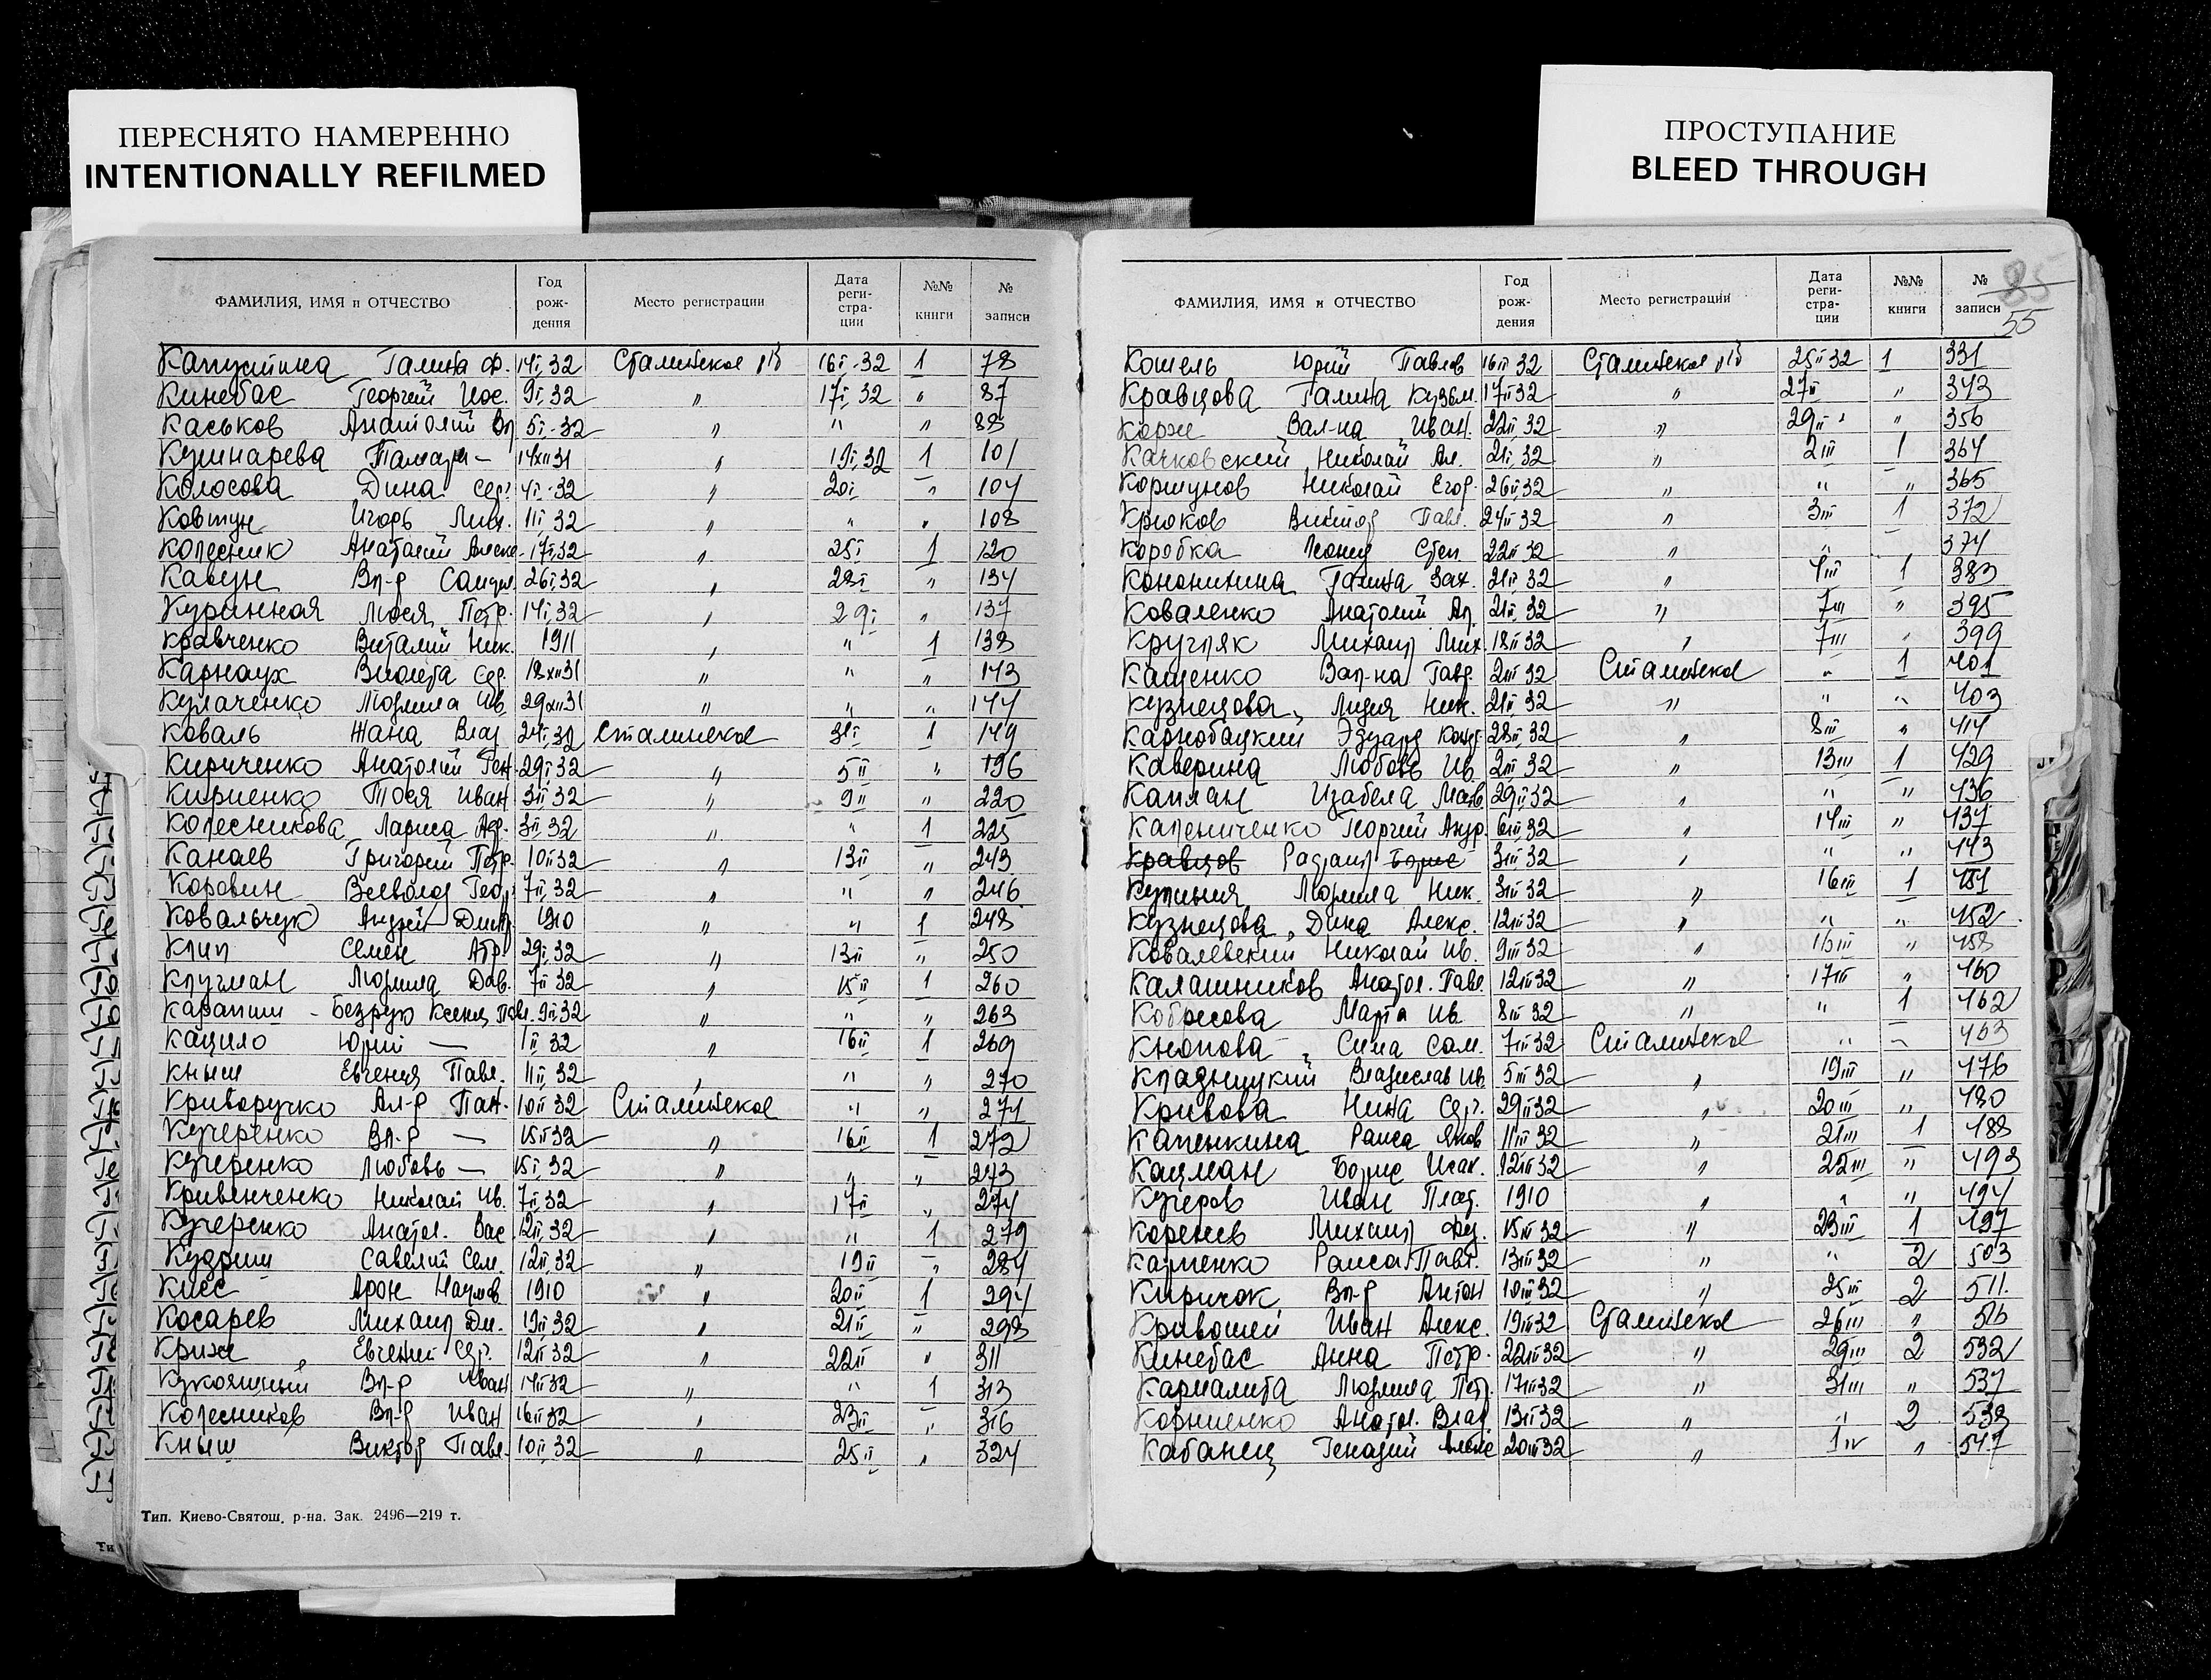 ПЕРЕСНЯТО НАМЕРЕННО
INTENTIONALLY REFILMED
ПРОСТУПАНИЕ
BLEED THROUGH
ФАМИЛИЯ, ИМЯ и ОТЧЕСТВО Год рождения Место регистрации Дата регистрации №№ книги № записи
Капустина Галина Ф. 14I,32 Сталинское 16I-32 1 78
Кинебас Георгий Иос. 9I,32 " 17I,32 " 87
Каськов Анатолий Вл 5I-32 " " " 88
Кушнарева Тамара — 14XII31 " 19I,32 1 101
Колосова Дина Сер. 4I-32 " 20I " 104
Ковтун Игорь Мих. 11I,32 " " " 108
Колесник Анатолий Алекс. 17I,32 " 25I 1 120
Кавун Вл-р Самуил 26I,32 " 28I " 134
Куринная Люся Петр. 14I,32 " 29I " 137
Кравченко Виталий Ник. 1911 " " 1 138
Карнаух Виолета Сер. 18XII31 " " " 143
Кулаченко Людмила Ив. 29XII31 " " " 144
Коваль Жана Влад. 24I,32 Сталинское 31I 1 149
Кириченко Анатолий Ген. 29I,32 " 5II " 196
Кириенко Тося Иван 3II32 " 9II " 220
Колесникова Лариса Адр. 3II,32 " " 1 225
Канаев Григорий Петр. 10II32 " 13II " 243
Коровин Всеволод Геор. 7II,32 " " " 246
Ковальчук Андрей Дмитр. 1910 " " 1 248
Клип Семен Абр. 29I,32 " 13II " 250
Клугман Людмила Дав. 7II32 " 15II 1 260
Карапиш - Безрук Ксения Павл. 9II32 " " " 263
Кацило Юрий — 1II32 " 16II 1 269
Кныш Евгения Павл. 11II,32 " " " 270
Криворучко Ал-р Пан. 10II32 Сталинское " " 271
Кучеренко Вл-р — 15II32 " 16II 1 272
Кучеренко Любовь — 15I,32 " " " 273
Кривенченко Николай Ив. 7II,32 " 17II " 274
Кучеренко Анатол. Вас. 12II,32 " " 1 279
Кудриш Савелий Сем. 12II,32 " 19II " 284
Кисс Арон Наумов 1910 " 20II 1 294
Косарев Михаил Дм. 19II32 " 21II " 298
Криж Евгений Сер. 12II32 " 22II " 311
Вл-р Иван 14II32 " " 1 313
Колесников Вл-р Иван 16II32 " 23II " 316
Кныш Виктор Павл. 10II,32 " 25II " 324
Тип. Киево-Святош. р-на. Зак. 2496—219 т.
85
55
ФАМИЛИЯ, ИМЯ и ОТЧЕСТВО Год рождения Место регистрации Дата регистрации №№ книги № записи
Кошель Юрий Павлов 16II32 Сталинское 25II32 1 331
Кравцова Галина Кузьм. 17II32 " 27II " 343
Корж Вал-на Иван. 22II,32 " 29II " 356
Качковский Николай Ал. 21I,32 " 2III 1 364
Коршунов Николай Егор. 26II,32 " " " 365
Крюков Виктор Павл. 24II32 " 3III 1 372
Коробка Леонид Степ 22II32 " " 374
Кононихина Галина Зах. 21II,32 " 4III 1 383
Коваленко Анатолий Ал. 21II,32 " 7III " 395
Кругляк Михаил Мих. 18II32 " 7III " 399
Кащенко Вал-на Гавр. 2III32 Сталинское " 1 401
Кузнецова Лидия Ник. 21II,32 " " " 403
Карнобацкий Эдуард Конст. 28II,32 " 8III " 414
Каверина Любовь Ив. 2III32 " 13III 1 429
Каплан Изабела Матв. 29II,32 " " " 436
Калениченко Георгий Андр. 6III,32 " 14III " 437
Кравцов Рафаил Борис 3III32 " " " 443
Людмила Ник. 3III32 " 16III 1 451
Кузнецова Дина Алекс. 12III32 " " " 452
Ковалевский Николай Ив. 9III32 " 16III " 458
Калашников Анатол. Павл. 12III32 " 17III " 460
Кобресова Марта Ив. 8III32 " " 1 462
Кнопова Сима Сам. 7III32 Сталинское " " 463
Кладницкий Владислав Ив. 5III32 " 19III " 476
Кривова Нина Сер. 29II32 " 20III " 480
Капенкина Раиса Яков 11III32 " 21III 1 488
Кацман Борис Исак. 12III32 " 22III " 493
Кучеров Иван Плат. 1910 " " " 494
Коренев Михаил Фед. 15III32 " 23III 1 497
Карпенко Раиса Павл. 13III32 " " 2 503
Киричок Вл-р Антон 10III32 " 25III 2 511.
Кривошей Иван Алекс. 19III32 Сталинское 26III " 516
Кинебас Анна Петр. 22III32 " 29III 2 532
Кармалита Людмила Петр. 17III32 " 31III " 537
Корниенко Анатол. Влад. 13III32 " " 2 538
Кабанец Генадий Алекс 20III32 " 1IV " 547